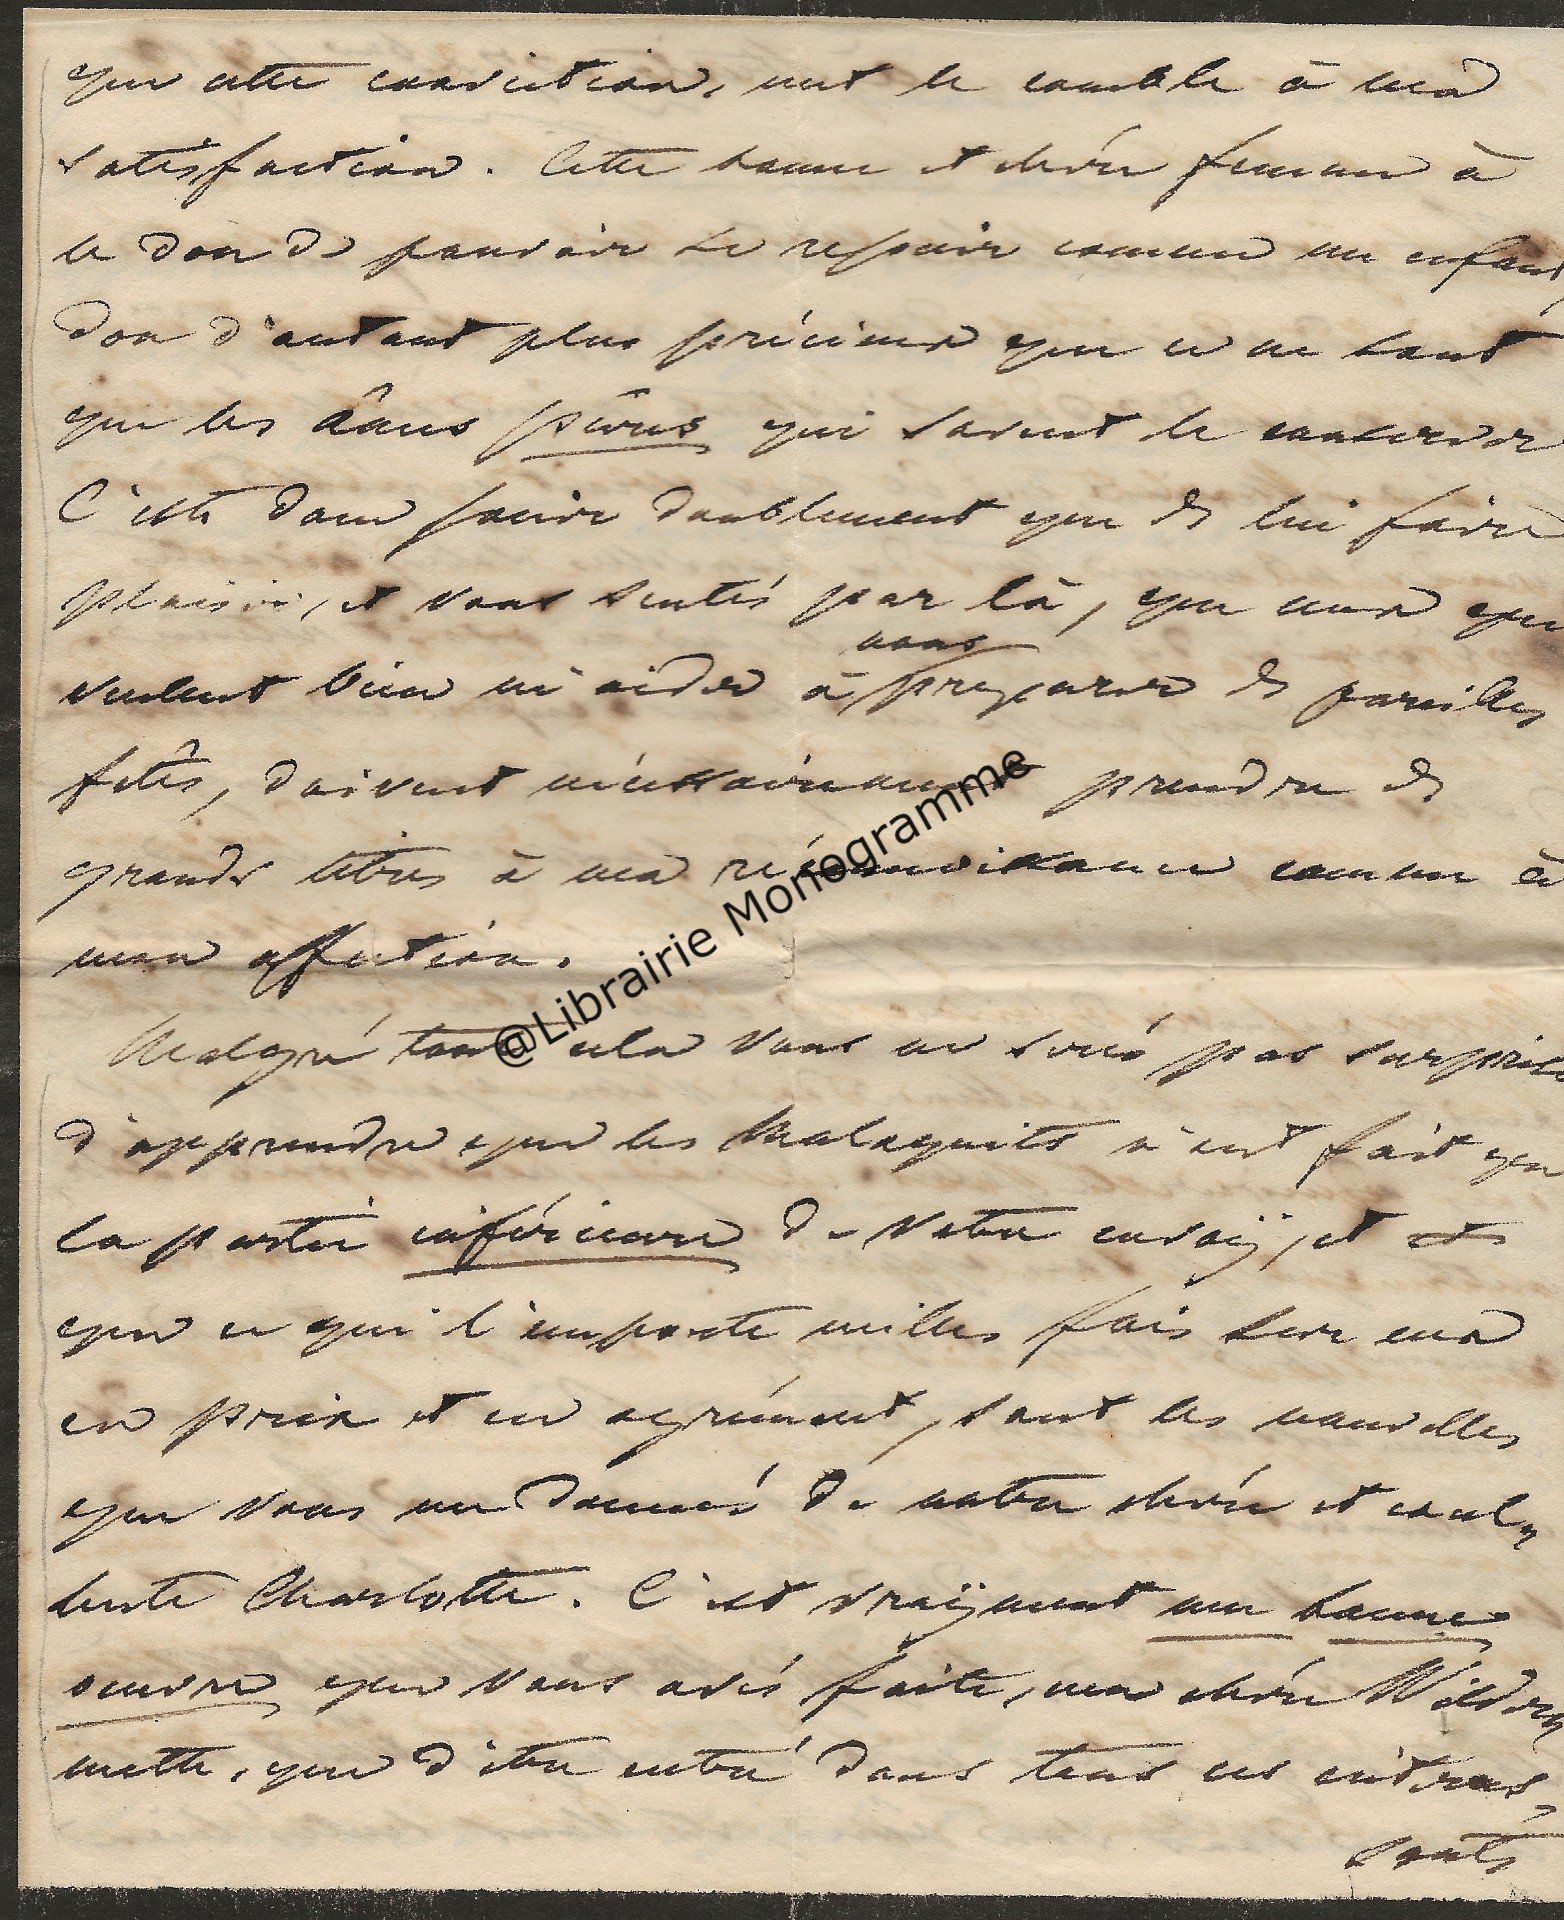 que cette conviction, met le comble à ma
satisfaction. Cette bonne et chère femme à
le don de pouvoir se rejouir comme un enfant,
don d'autant plus précieux que ce ne sont
que les âmes pûres qui savent le conserver
C'este donc jouire doublement que de lui faire
plaisir, et vous sentés par là, que ceux qui
veulent bien m'aider à nous preparer de pareilles
fêtes, doivent nécessairement prendre de
grands titres à ma réconnoissance comme à
mon affection.
Malgré tout cela vous ne serés pas surprise
d'apprendre que les Malaquits n'ont fait que
la partie inférieure de votre envoÿ, et
que ce qui l'emporte milles fois sur eux
en prix et en agrément, sont les nouvelles
que vous me donnés de notre chère et excel-
lente Charlotte. C'est vraÿment une bonne
oeuvre que vous avés faite, ma chère Wildermette,
que d'être entré dans tous ces intéres-
sants
@Librairie Monogramme